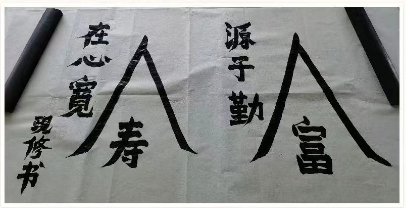 人富
源于勤
人寿
在心寬
修书